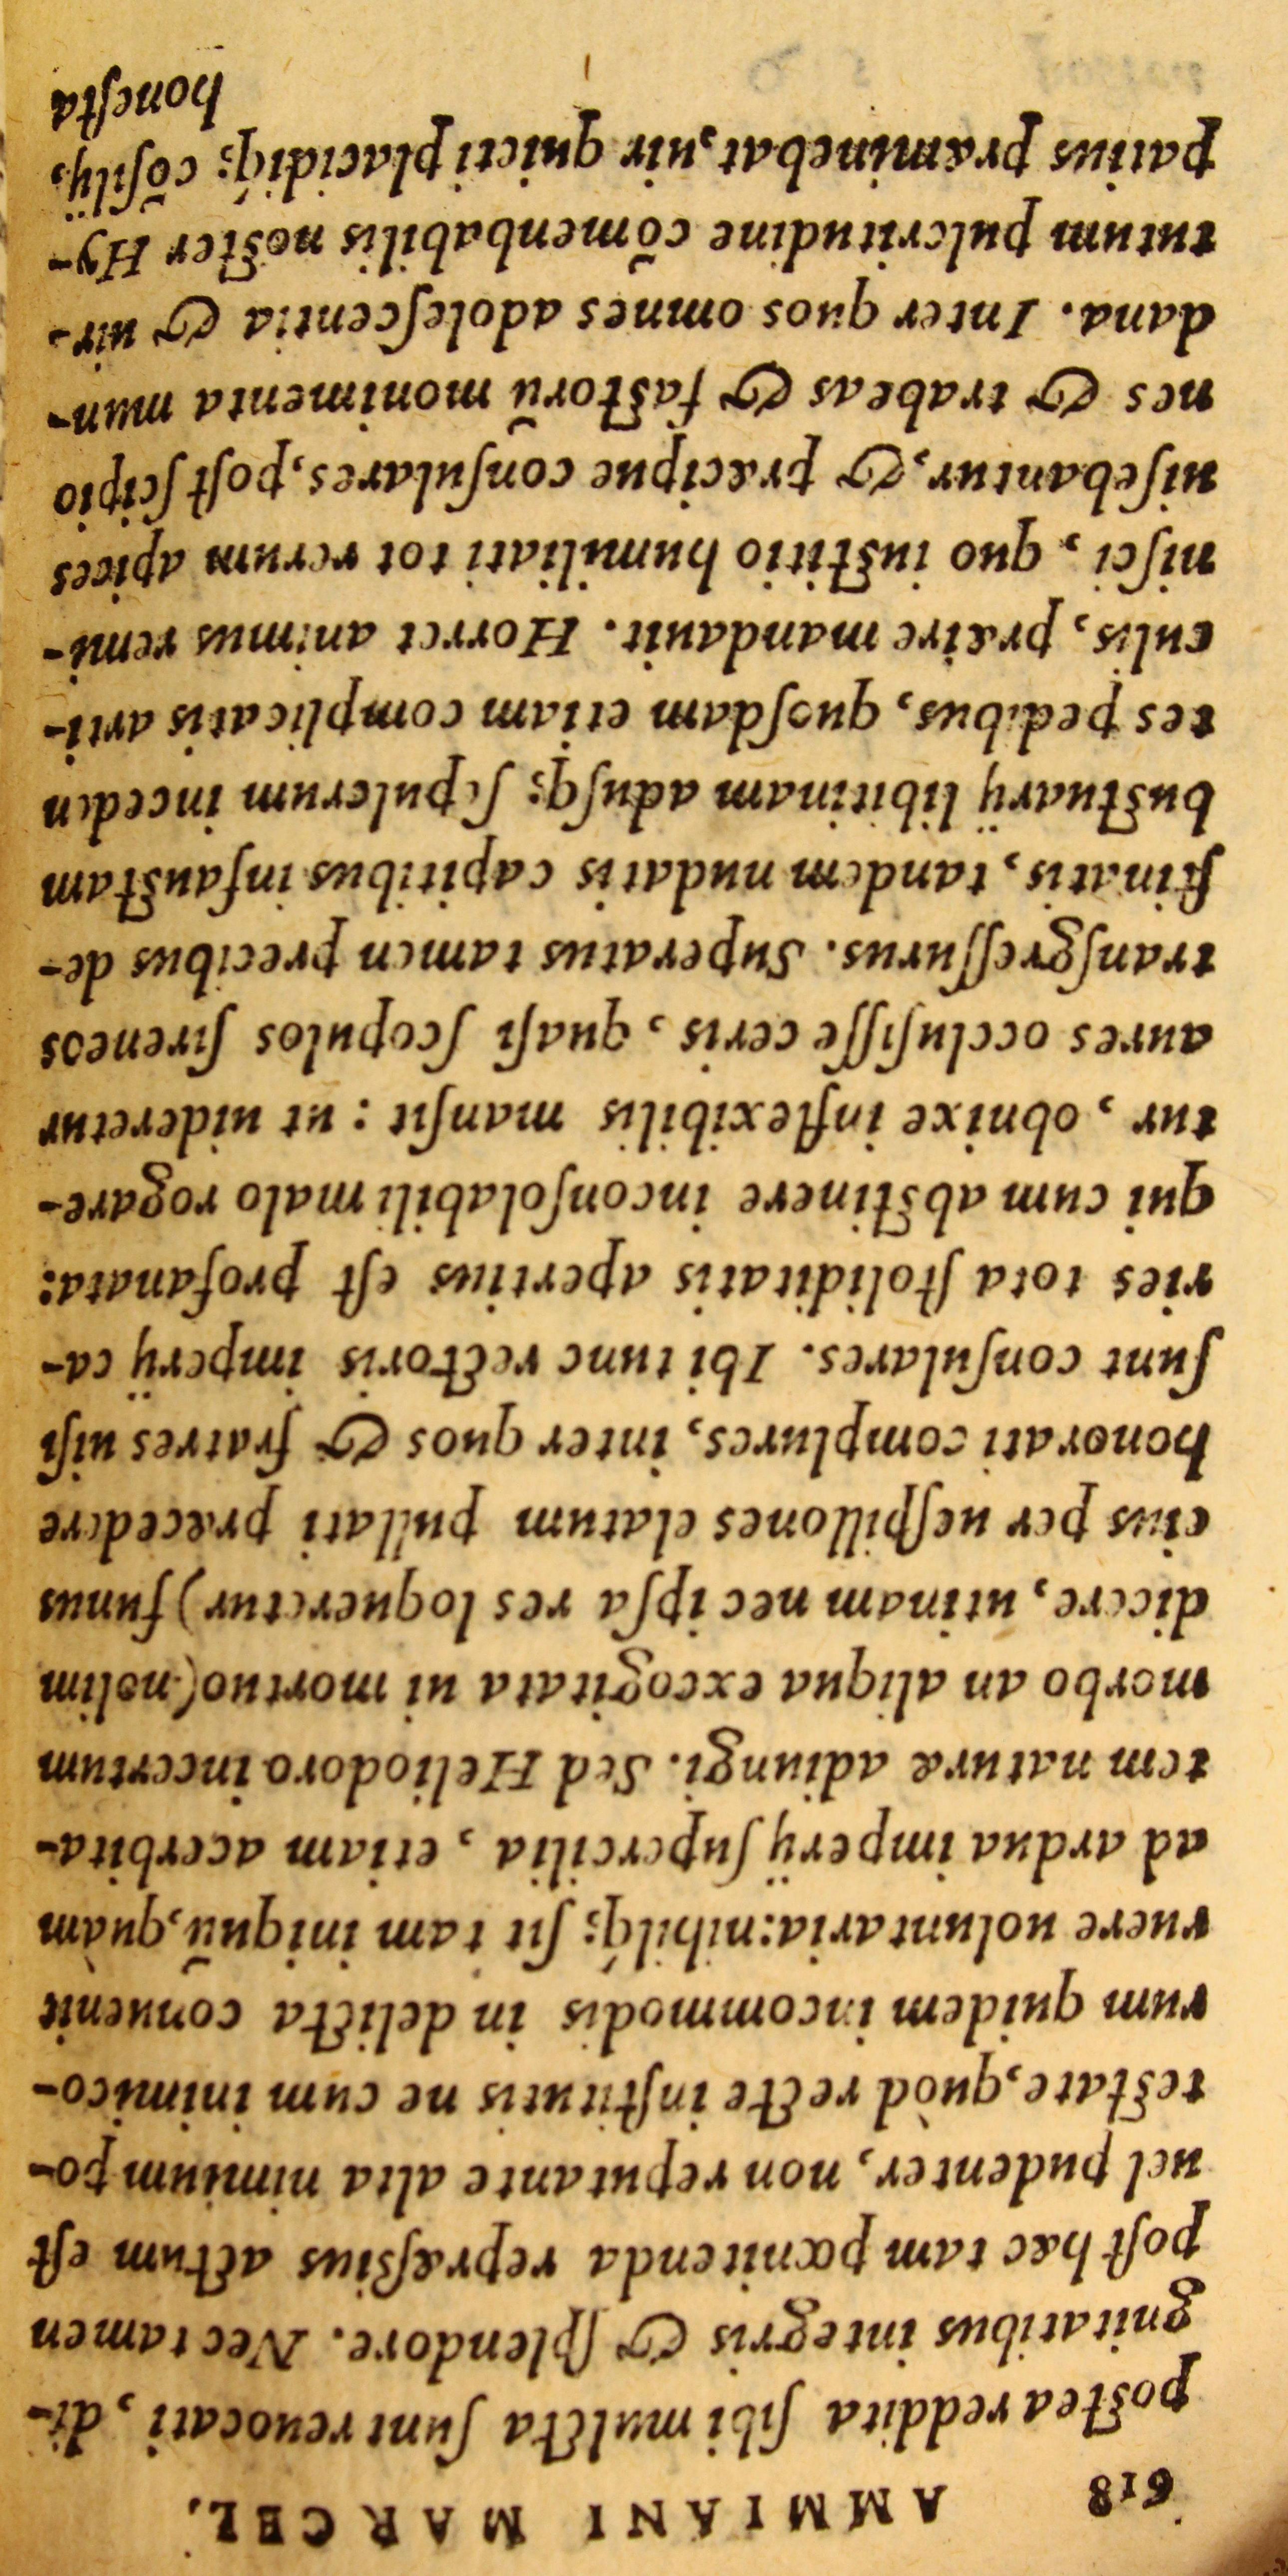 618 AMMIANI MARCEL.
postea reddita sibi mulcta sunt reuocati, di-
gnitatibus integris & splendore. Nec tamen
post hæc tam pœnitenda repræssius actum est
uel pudenter, non reputante alta nimium po-
testate, quòd recte institutis ne cum inimico-
rum quidem incommodis in delicta conuenit
ruere uoluntaria: nihilq́; sit tam iniquũ, quàm
ad ardua imperij supercilia, etiam acerbita-
tem naturæ adiungi. Sed Heliodoro incertum
morbo an aliqua excogitata ui mortuo (nolim
dicere, utinam nec ipsa res loqueretur) funus
eius per uespillones elatum pullati præcedere
honorati complures, inter quos & fratres uisi
sunt consulares. Ibi tunc rectoris imperij ca-
ries tota stoliditatis apertius est profanata:
qui cum abstinere inconsolabili malo rogare-
tur, obnixe inflexibilis mansit: ut uideretur
aures occlusisse ceris, quasi scopulos sireneos
transgressurus. Superatus tamen precibus de-
stinatis, tandem nudatis capitibus infaustam
bustuarij libitinam adusq; sepulcrum inceden
tes pedibus, quosdam etiam complicatis arti-
culis, præire mandauit. Horret animus remi-
nisci, quo iustitio humiliati tot rerum apices
uisebantur, & præcipue consulares, post scipio
nes & trabeas & fastorũ monimenta mun-
dana. Inter quos omnes adolescentia & uir-
tutum pulcritudine cõmenbabilis noster Hy-
patius præminebat, uir quieti placidiq́; cõsilij,
honesta